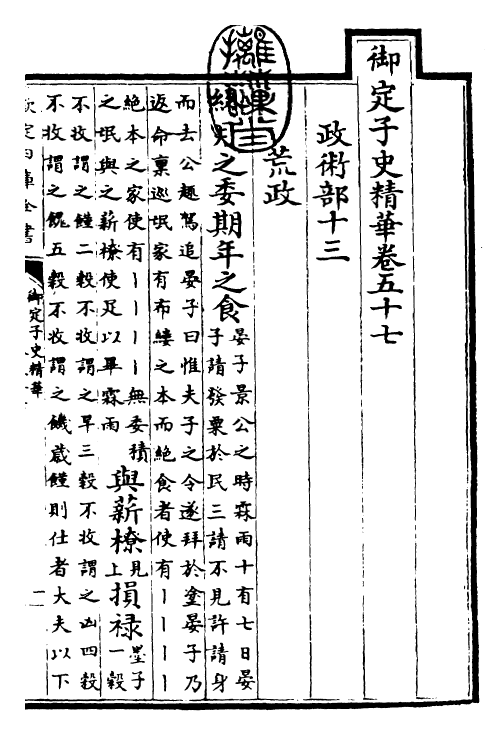 御定子史精華卷五十七
政術部十三
荒政
終月之委期年之食
晏子景公之時霖雨十有七日晏
子請發粟於民三請不見許請身
而去公趣駕追晏子曰惟夫子之令遂拜於塗晏子乃
返命稟巡氓家有布縷之本而絕食者使有丨丨丨丨
絕本之家使有丨丨丨丨無委積
之氓與之薪橑使足以畢霖雨
與薪橑
見
上
損祿
墨子
一穀
不收謂之饉二穀不收謂之旱三穀不收謂之凶四穀
不收謂之餽五穀不收謂之饑歲饉則仕者大夫以下
欽定四庫全書
御定子史精華
一